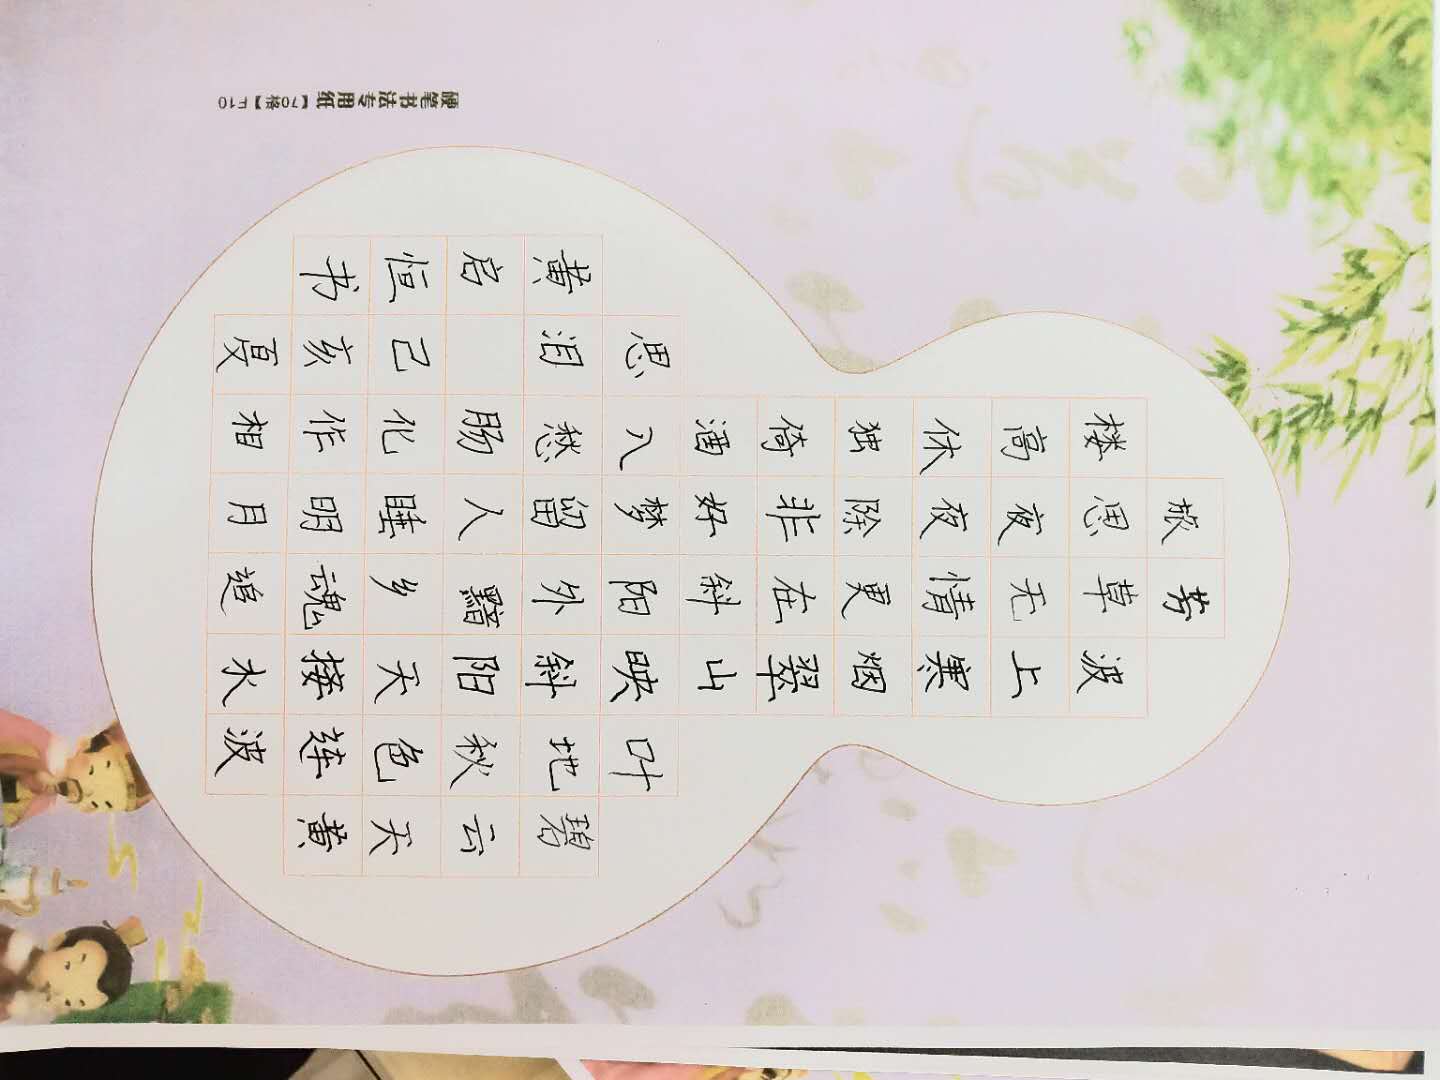 碧云天黄
叶地秋色莲波
波上寒烟翠山映斜阳天接水
芳草无情更在斜阳外黯乡魂追
旅思夜夜除非好梦留人睡明月
楼高休独倚酒入愁肠化作相
思泪 己亥夏
黄启恒书
硬笔书法专用纸【70格】F10